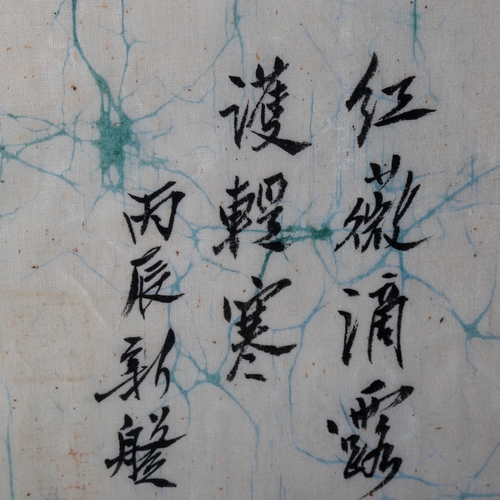 红薇滴露
護輕寒
丙辰新盤